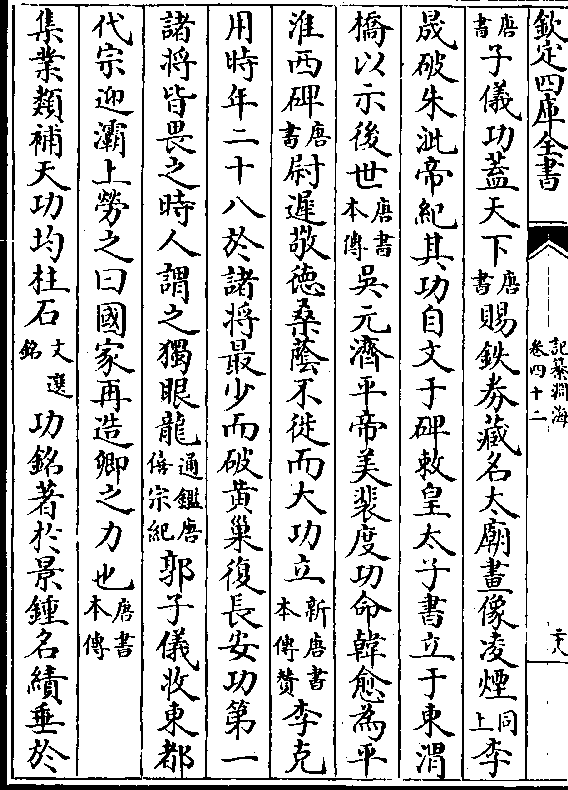 欽定四庫全書
記纂淵海
卷四十二
二十八
唐書子儀功蓋天下唐書賜鉄劵藏名太廟畫像凌煙同上李
晟破朱泚帝紀其功自文于碑敕皇太子書立于東渭
橋以示後世唐書本傳吳元濟平帝美裴度功命韓愈為平
淮西碑唐書尉遲敬德桑蔭不徙而大功立新唐書本傳贊李克
用時年二十八於諸将最少而破黄巢復長安功第一
諸将皆畏之時人謂之獨眼龍通鑑唐僖宗紀郭子儀收東都
代宗迎灞上勞之曰國家再造卿之力也唐書本傳
集業類補天功均柱石文選銘功銘著於景鍾名績垂於